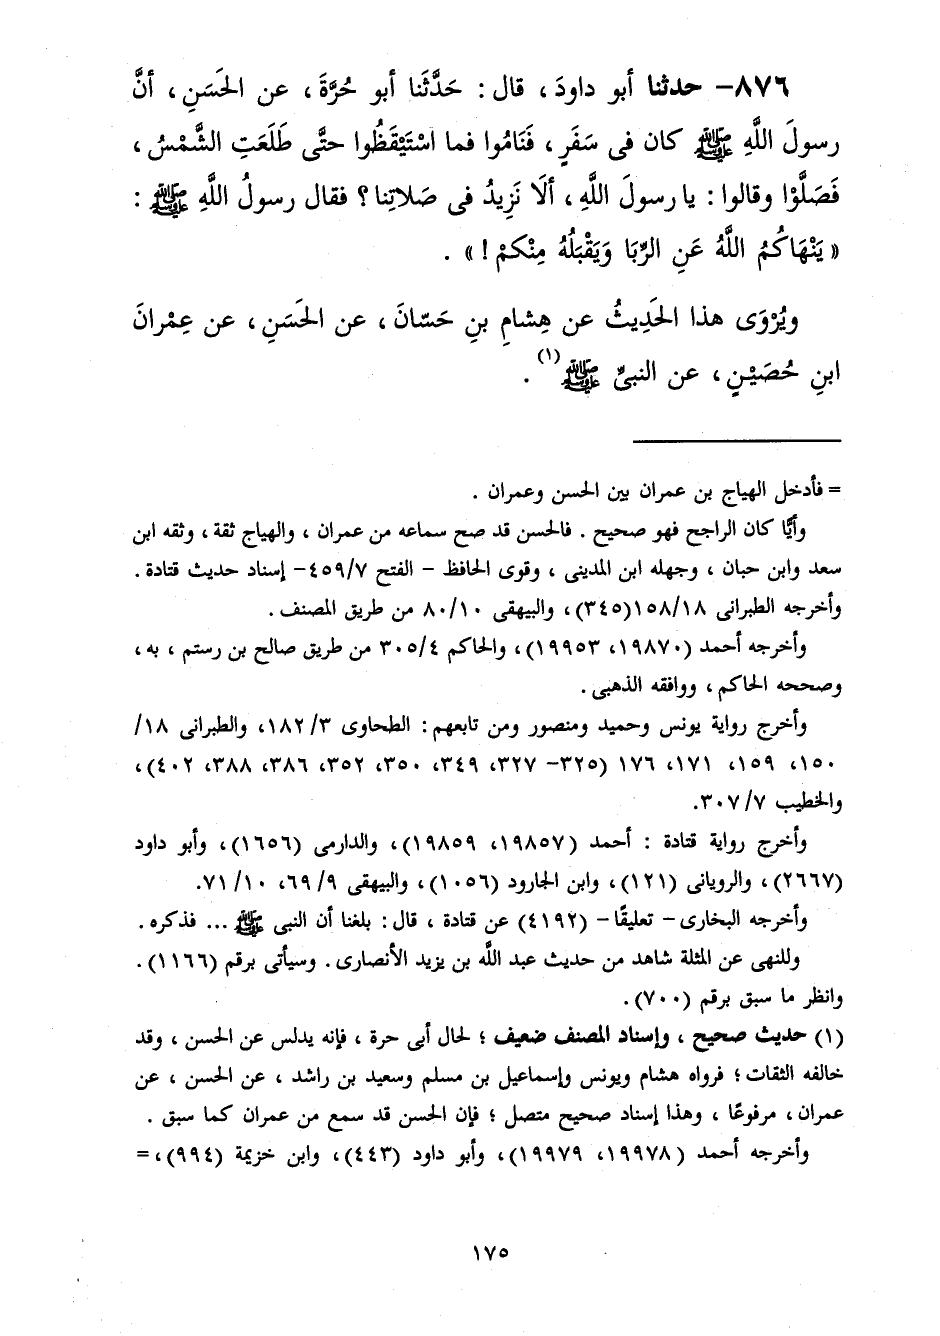 ٨٧٦- حدثنا أبو داودَ ، قال : حَدَّثَنا أبو حُرَّةَ ، عن الحَسَنِ ، أنَّ
رسولَ اللَّهِ ﷺ كان فى سَفَرٍ ، فَنَامُوا فما اسْتَيْقَظُوا حتَّى طَلَعَتِ الشَّمْسُ ،
فَصَلَّوْا وقالوا : يا رسولَ اللَّهِ ، ألَا نَزِيدُ فى صَلاتِنا ؟ فقال رسولُ اللَّهِ ﷺ :
« يَنْهَاكُمُ اللَّهُ عَنِ الرِّبَا وَيَقْبَلُهُ مِنْكمْ ! » .
ويُرْوَى هذا الحَدِيثُ عن هِشامِ بنِ حَسّانَ ، عن الحَسَنِ ، عن عِمْرانَ
ابنِ حُصَيْنٍ ، عن النبىِّ ﷺ (١) .
= فأدخل الهياج بن عمران بين الحسن وعمران .
وأيًّا كان الراجح فهو صحيح . فالحسن قد صح سماعه من عمران ، والهياج ثقة ، وثقه ابن
سعد وابن حبان ، وجهله ابن المدينى ، وقوى الحافظ - الفتح ٤٥٩/٧- إسناد حديث قتادة .
وأخرجه الطبرانى ١٥٨/١٨(٣٤٥) ، والبيهقى ٨٠/١٠ من طريق المصنف .
وأخرجه أحمد (١٩٨٧٠، ١٩٩٥٣) ، والحاكم ٣٠٥/٤ من طريق صالح بن رستم ، به ،
وصححه الحاكم ، ووافقه الذهبى .
وأخرج رواية يونس وحميد ومنصور ومن تابعهم : الطحاوى ١٨٢/٣، والطبرانى ١٨/
١٥٠، ١٥٩، ١٧١، ١٧٦ (٣٢٥- ٣٢٧، ٣٤٩، ٣٥٠، ٣٥٢، ٣٨٦، ٣٨٨، ٤٠٢) ،
والخطيب ٣٠٧/٧.
وأخرج رواية قتادة : أحمد (١٩٨٥٧، ١٩٨٥٩) ، والدارمى (١٦٥٦) ، وأبو داود
(٢٦٦٧) ، والرويانى (١٢١) ، وابن الجارود (١٠٥٦) ، والبيهقى ٦٩/٩، ٧١/١٠.
وأخرجه البخارى - تعليقًا - (٤١٩٢) عن قتادة ، قال : بلغنا أن النبى ﷺ ... فذكره .
وللنهى عن المثلة شاهد من حديث عبد اللَّه بن يزيد الأنصارى . وسيأتى برقم (١١٦٦) .
وانظر ما سبق برقم (٧٠٠) .
(١) حديث صحيح ، وإسناد المصنف ضعيف ؛ لحال أبى حرة ، فإنه يدلس عن الحسن ، وقد
خالفه الثقات ؛ فرواه هشام ويونس وإسماعيل بن مسلم وسعيد بن راشد ، عن الحسن ، عن
عمران ، مرفوعًا ، وهذا إسناد صحيح متصل ؛ فإن الحسن قد سمع من عمران كما سبق .
وأخرجه أحمد (١٩٩٧٨، ١٩٩٧٩) ، وأبو داود (٤٤٣) ، وابن خزيمة (٩٩٤) ، =
١٧٥